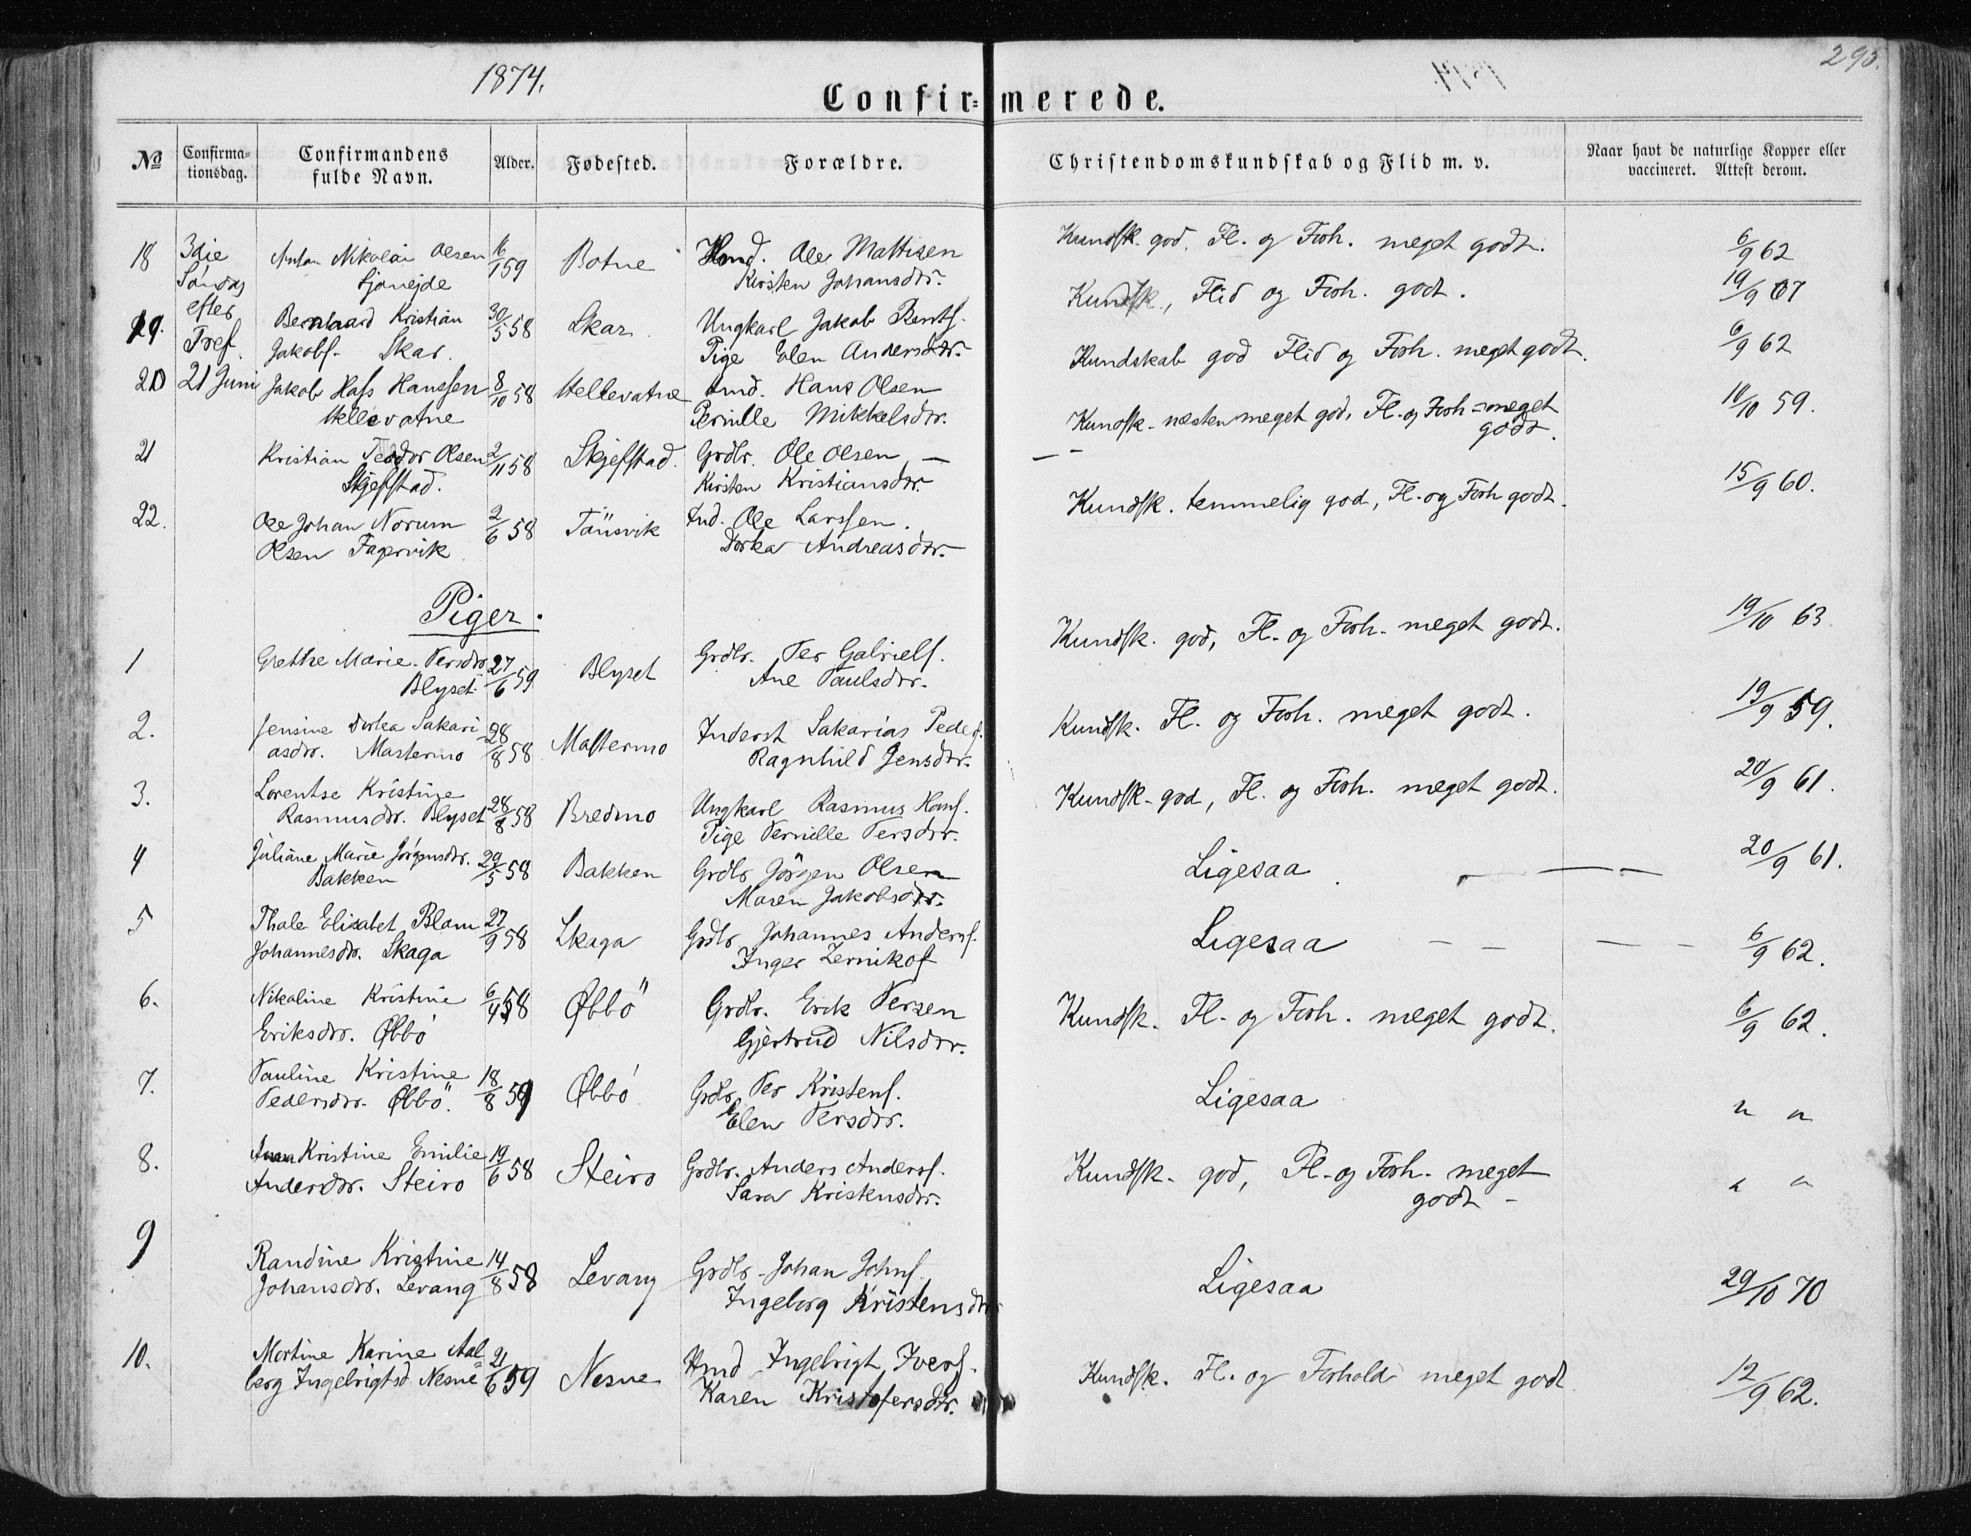 1874.
295.
Confirmerede.
No
Confirma-
tionsdag.
Confirmandens
fulde Navn.
Alder.
Fødested.
Forældre.
Christendomskundskab og Flid m. v.
Naar havt de naturlige Kopper eller
vaccineret. Attest derom.
18 3die Anton Nikolai Olsen 16/1 59 Botne Hmd. Ole Mattisen Kundsk. god, Fl. og Forh. meget godt. 6/9 62
Søndag Sjonejde Kirsten Johansdtr.
efter
19. Tref. Bernhard Kristian 30/5 58 Skar Ungkarl Jakob Bents. Kundsk., Flid og Forh. godt. 19/9 67
Jakobs. Skar. Pige Elen Andersdtr.
20 21 Juni Jakob Hass Hanssen 8/10 58 Hellevatne Hmd. Hans Olsen Kundskab god Flid og Forh. meget godt. 6/9 62
Hellevatne Pernille Mikkelsdtr.
21 Kristian Teodor Olsen 2/11 58 Skjefstad. Grdbr. Ole Olsen — Kundsk. næsten meget god, Fl. og Forh. meget 10/10 59.
Skjefstad. Kirsten Kristiansdtr. godt.
22. Ole Johan Norum 2/6 58 Tänsvik Ind. Ole Larssen. Kundsk. temmelig god, Fl. og Forh godt. 15/9 60.
Olsen Fagervik Dorka Andreasdtr.
Piger.
1 Grethe Marie Persdtr. 27/6 59 Blyset Grdbr. Per Gabriels. Kundsk. god, Fl. og Forh. meget godt. 19/10 63
Blyset. Ane Paulsdtr.
2. Jensine Dorka Sakari- 28/8 58 Mastermo Inderst Sakarias Peders. Kundsk. Fl. og Forh. meget godt. 19/9 59.
asdtr. Mastermo Ragnhild Jensdtr.
3. Lorentse Kristine 28/8 58 Bredmo Ungkarl Rasmus Hans. Kundsk. god, Fl. og Forh. meget godt. 20/9 61.
Rasmusdtr. Blyset Pige Pernille Persdtr.
4 Juliane Marie Jörgensdtr. 29/5 58 Bakken Grdbr Jörgen Olsen Ligesaa — — 20/9 61.
Bakken Maren Jakobsdtr.
5 Thale Elisabet Blam 27/9 58 Skaga Grdbr Johannes Anders. Ligesaa — — — — 6/9 62.
Johannesdtr. Skaga Inger Zernikof
6. Nikoline Kristine 6/4 58 Øbbö Grdbr. Erik Persen Kundsk. Fl. og Forh. meget godt. 6/9 62.
Eriksdtr. Øbbö Gjertrud Nilsdtr.
7. Pauline Kristine 18/8 59 Øbbö Grdbr. Per Kristens. Ligesaa " "
Pedersdtr. Øbbö. Elen Persdtr.
8. Anna Kristine Emilie 19/6 58 Steiro Grdbr. Anders Anders. Kundsk. god, Fl. og Forh. meget " "
Andersdtr. Steiro Sara Kristensdtr. godt -
9 Randine Kristine 14/8 58 Levang Grdbr. Johan Johns. Ligesaa 29/10 70
Johansdtr. Levang Ingeborg Kristensdtr
10. Mortine Karine Aal- 21/6 59 Nesne Hmd Ingebrigt Ivers. Kundsk. Fl. og Forhold meget godt 12/9 62.
berg Ingebrigtsd Nesne Karen Kristofersdtr.